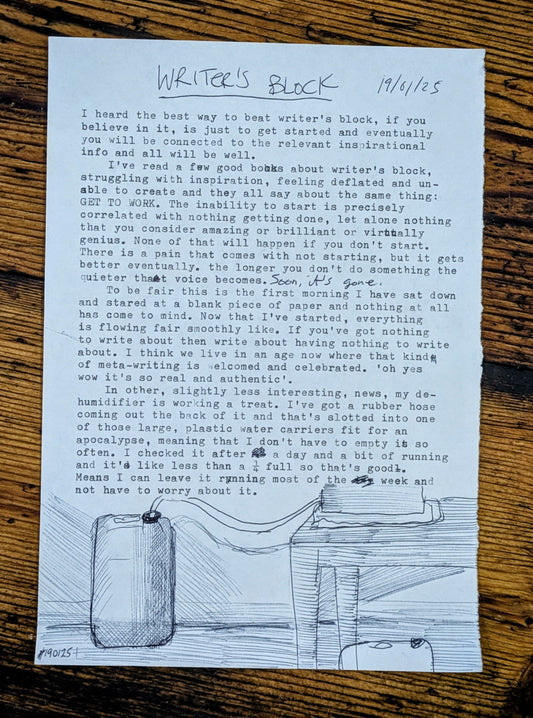 WRITER'S BLOCK 19/01/25
I heard the best way to beat writer's block, if you
believe in it, is just to get started and eventually
you will be connected to the relevant inspirational
info and all will be well.
I've read a few good books about writer's block,
struggling with inspiration, feeling deflated and un-
able to create and they all say about the same thing:
GET TO WORK. The inability to start is precisely
correlated with nothing getting done, let alone nothing
that you consider amazing or brilliant or virtually
genius. None of that will happen if you don't start.
There is a pain that comes with not starting, but it gets
better eventually. the longer you don't do something the
quieter that voice becomes. Soon, it's gone.
To be fair this is the first morning I have sat down
and stared at a blank piece of paper and nothing at all
has come to mind. Now that I've started, everything
is flowing fair smoothly like. If you've got nothing
to write about then write about having nothing to write
about. I think we live in an age now where that kind
of meta-writing is welcomed and celebrated. 'oh yes
wow it's so real and authentic'.
In other, slightly less interesting, news, my de-
humidifier is working a treat. I've got a rubber hose
coming out the back of it and that's slotted into one
of those large, plastic water carriers fit for an
apocalypse, meaning that I don't have to empty it so
often. I checked it after a day and a bit of running
and it's like less than a ¼ full so that's good.
Means I can leave it running most of the week and
not have to worry about it.
#190125-1